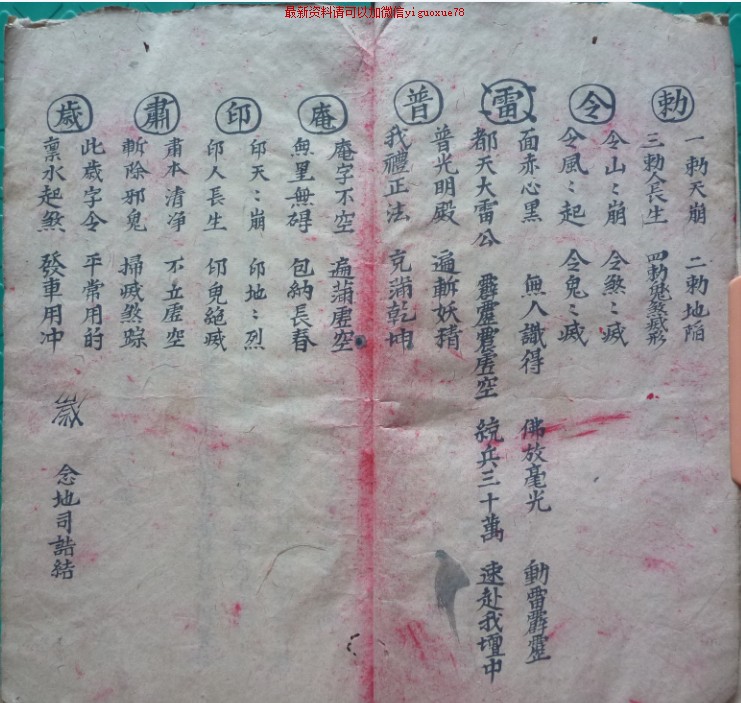 最新资料请可以加微信yiguoxue78
勅
一勅天崩 二勅地陷
三勅人長生 四勅鬼煞滅形
令
令山〻崩 令煞〻滅
令風〻起 令鬼〻滅
雷
面赤心黑 無人識得 佛放毫光 動雷霹靂
都天大雷公 霹靂震虛空 統兵三十萬 速赴我壇中
普
普光明殿 遍斬妖精
我禮正法 充滿乾坤
庵
庵字不空 遍滿虛空
無里無碍 包納長春
印
印天〻崩 印地〻烈
印人長生 印鬼絶滅
肅
肅本清净 不立虛空
斬除邪鬼 掃滅煞踪
歲
此歲字令 平常用的
禀水起煞 發車用冲 歲 念地司誥結